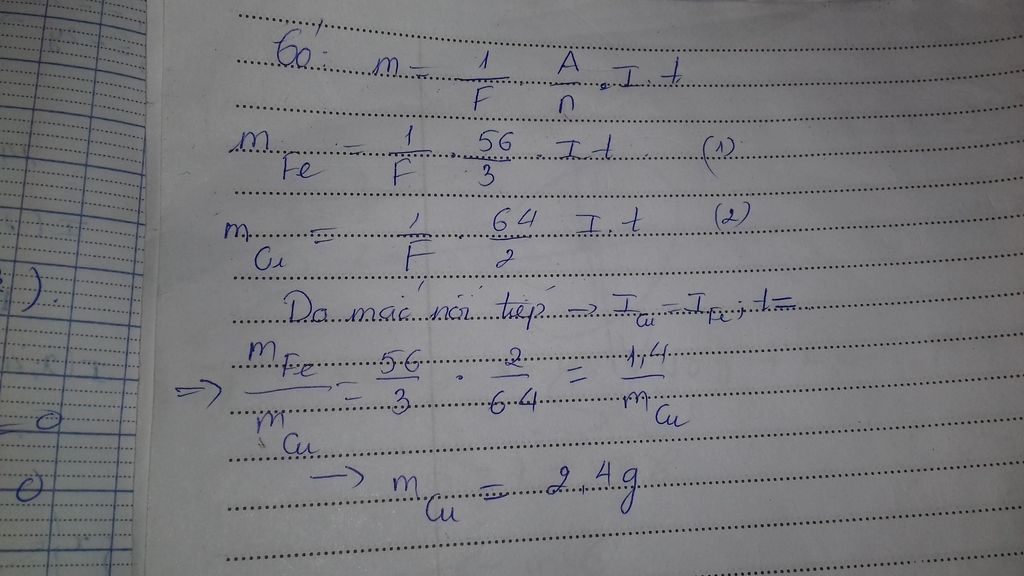 Có: m = 1/F A/n . I . t
m Fe = 1/F . 56/3 . I t (1)
m Cu = 1/F . 64/2 I . t (2)
Do mắc nối tiếp → I Cu = I Fe ; t =
=> m Fe / m Cu = 56/3 . 2/64 = 1,4 / m Cu
→ m Cu = 2,4g